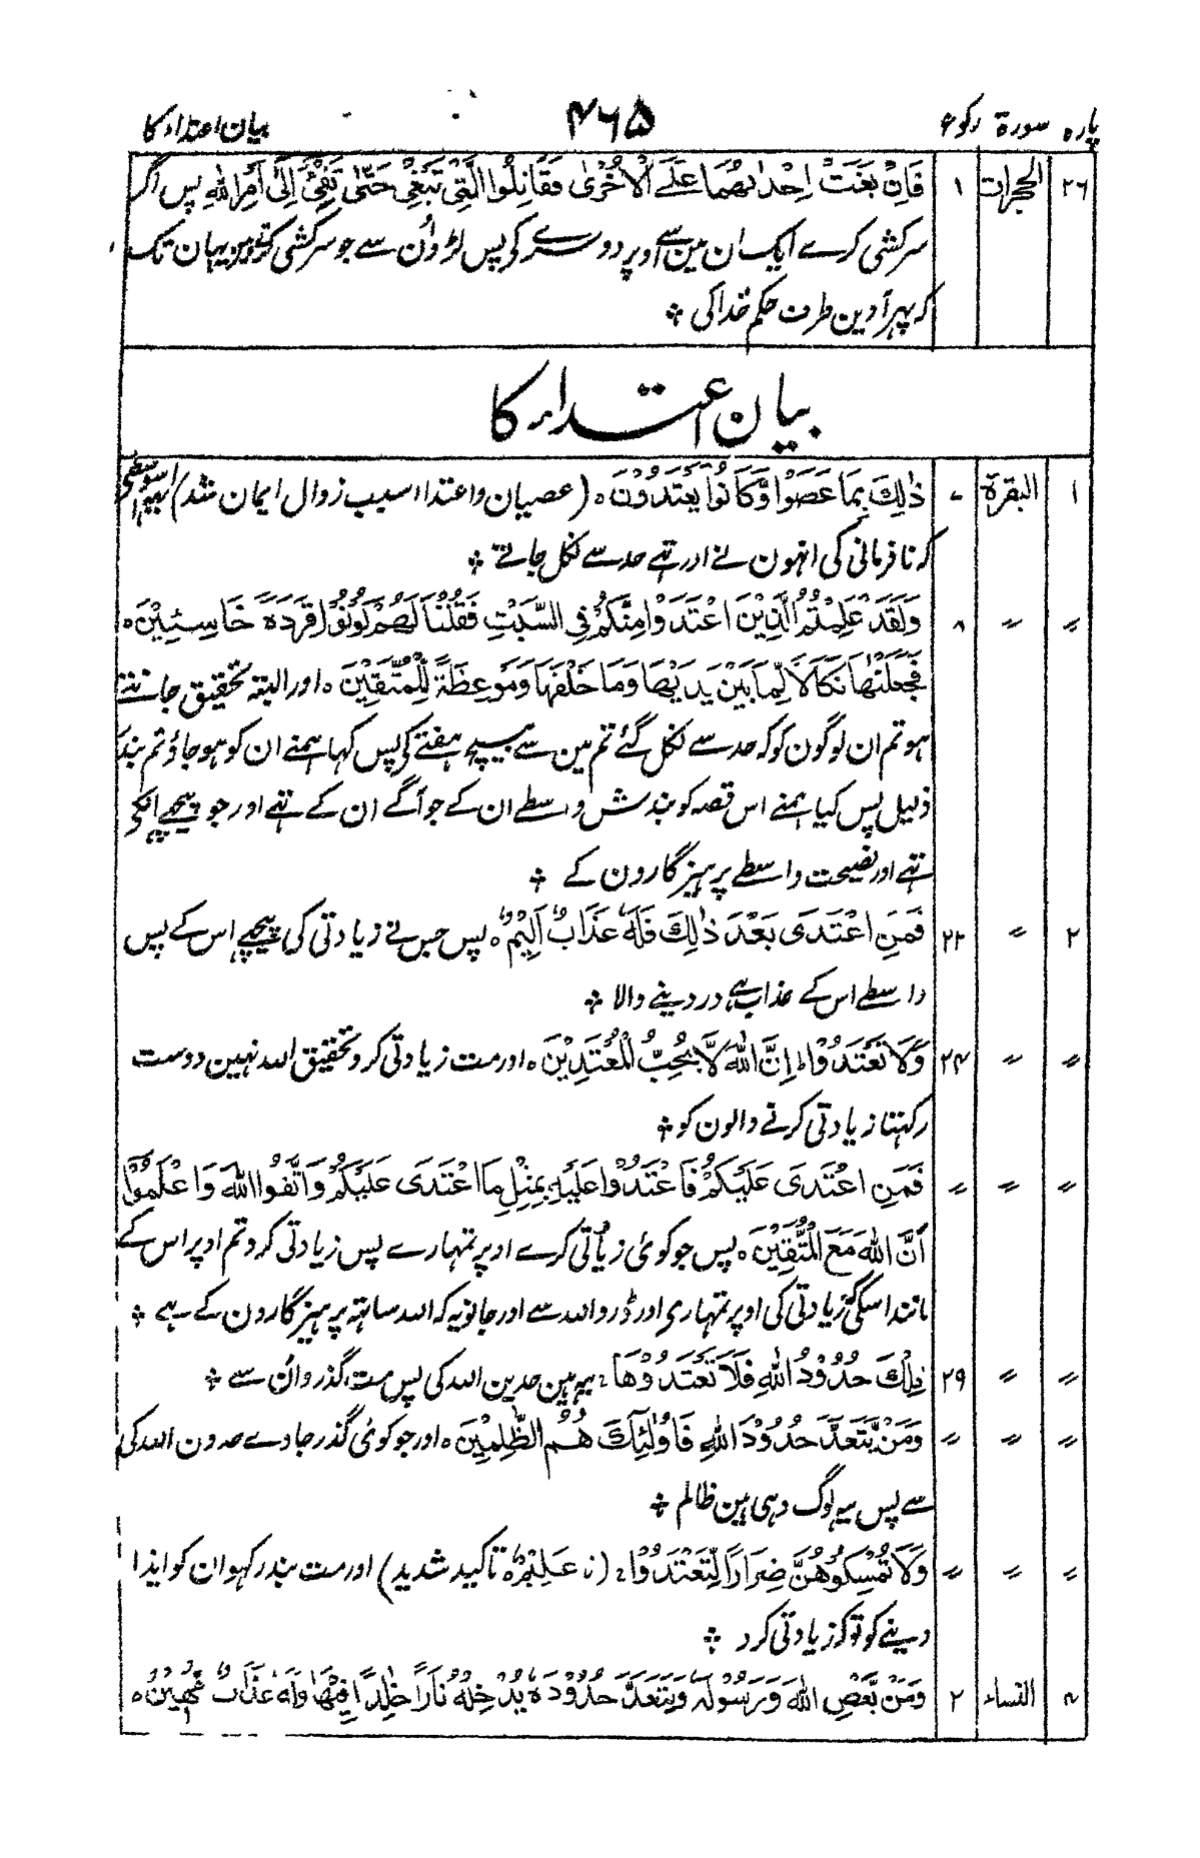 پارہ سورۃ رکوع ۴۶۵ بیان اعتداء کا
۲۶ الحجرات ۱ فَاِنْۢ بَغَتْ اِحْدٰىہُمَا عَلَے الْاُخْرٰی فَقَاتِلُوا الَّتِیْ تَبْغِیْ حَتّٰی تَفِیْٓئَ اِلٰٓی اَمْرِ اللہِ پس اگر
سرکشی کرے ایک ان مین سے اوپر دوسرے کی پس لڑو اُن سے جو سرکشی کرتے ہین یہان تک
کہ پہر آوین طرف حکم خدا کی ؞
بیان اعتداء کا
۱ البقرۃ ۷ ذٰلِکَ بِمَا عَصَوْا وَّکَانُوْا یَعْتَدُوْنَ ہ (عصیان و اعتدا سبب زوال ایمان شد) یہ اسواسطے
کہ نافرمانی کی انہون نے اور تہے حد سے نکل جاتے ؞
〃 〃 ۸ وَلَقَدْ عَلِمْتُمُ الَّذِیْنَ اعْتَدَوْا مِنْکُمْ فِی السَّبْتِ فَقُلْنَا لَہُمْ کُوْنُوْا قِرَدَۃً خَاسِئِیْنَ ہ
فَجَعَلْنٰھَا نَکَالًا لِّمَا بَیْنَ یَدَیْھَا وَمَا خَلْفَھَا وَمَوْعِظَۃً لِّلْمُتَّقِیْنَ ہ اور البتہ تحقیق جانتے
ہو تم ان لوگون کو کہ حد سے نکل گئے تم مین سے بیچ ہفتے کی پس کہا ہمنے ان کو ہو جاؤ تم بندر
ذلیل پس کیا ہمنے اس قصہ کو بندش واسطے ان کے جو آگے ان کے تہے اور جو پیچہے انکی
تہے اور نصیحت واسطے پرہیزگارون کے ؞
۲ 〃 ۲۲ فَمَنِ اعْتَدَی بَعْدَ ذٰلِکَ فَلَہٗ عَذَابٌ اَلِیْمٌ ہ پس جس نے زیادتی کی پیچہے اس کے پس
واسطے اس کے عذاب ہے درد دینے والا ؞
〃 〃 ۲۴ وَلَا تَعْتَدُوْا ؕ اِنَّ اللہَ لَا یُحِبُّ الْمُعْتَدِیْنَ ہ اور مت زیادتی کرو تحقیق اللہ نہین دوست
رکہتا زیادتی کرنے والون کو ؞
〃 〃 〃 فَمَنِ اعْتَدَی عَلَیْکُمْ فَاعْتَدُوْا عَلَیْہِ بِمِثْلِ مَا اعْتَدَی عَلَیْکُمْ وَاتَّقُوا اللہَ وَاعْلَمُوْٓا
اَنَّ اللہَ مَعَ الْمُتَّقِیْنَ ہ پس جو کوئی زیادتی کرے اوپر تمہارے پس زیادتی کرو تم اوپر اس کے
مانند اسکی زیادتی کی اوپر تمہاری اور ڈرو اللہ سے اور جانو یہ کہ اللہ ساتہہ پرہیزگارون کے ہے ؞
〃 〃 ۲۹ تِلْکَ حُدُوْدُ اللہِ فَلَا تَعْتَدُوْھَا ۚ یہ ہین حدین اللہ کی پس مت گذرو ان سے ؞
〃 〃 〃 وَمَنْ یَّتَعَدَّ حُدُوْدَ اللہِ فَاُولٰٓئِکَ ھُمُ الظّٰلِمِیْنَ ہ اور جو کوئی گذر جاوے حدون اللہ کی
سے پس یہ لوگ وہی ہین ظالم ؞
〃 〃 〃 وَلَا تُمْسِکُوْھُنَّ ضِرَارًا لِّتَعْتَدُوْا ۚ ( تاکید شدید) اور مت بند رکہو ان کو ایذا
دینے کو توکہ زیادتی کرو ؞
۴ النساء ۲ وَمَنْ یَّعْصِ اللہَ وَرَسُوْلَہٗ وَیَتَعَدَّ حُدُوْدَہٗ یُدْخِلْہُ نَارًا خَالِدًا فِیْھَا وَلَہٗ عَذَابٌ مُّھِیْنٌ ہ